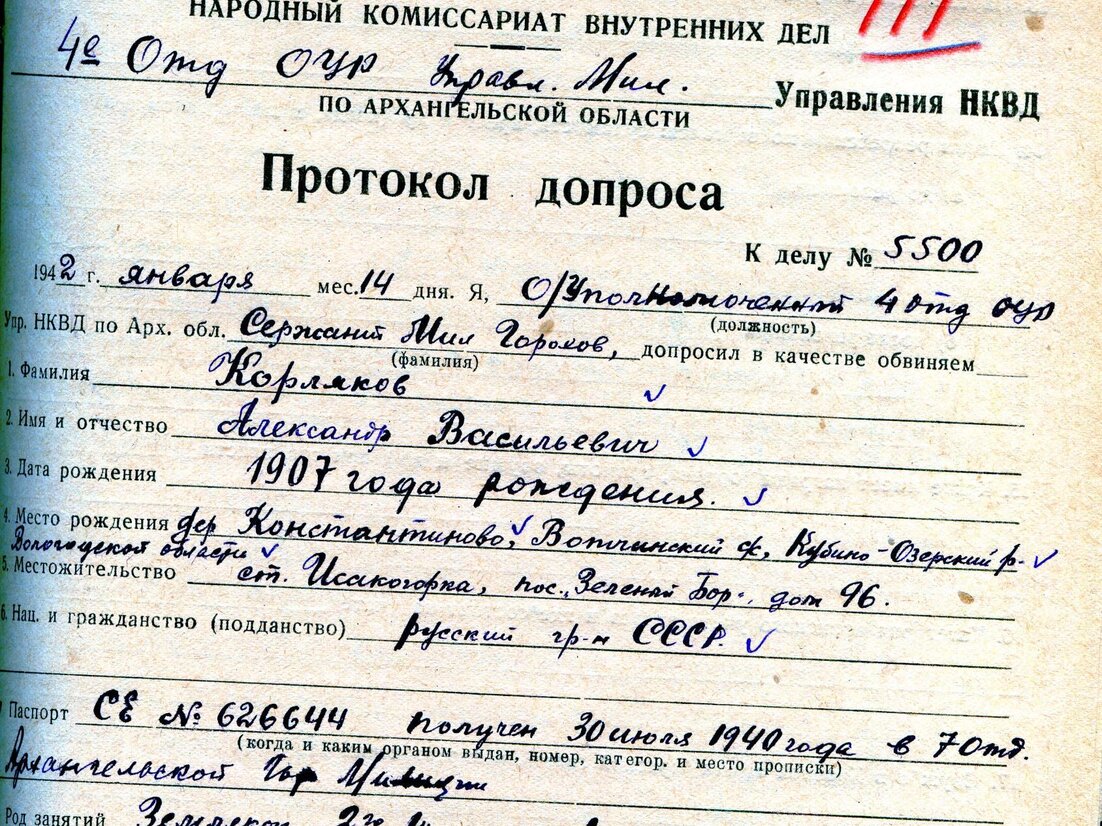 НАРОДНЫЙ КОМИССАРИАТ ВНУТРЕННИХ ДЕЛ
4е Отд ОУР Управл. Мил. Управления НКВД
ПО АРХАНГЕЛЬСКОЙ ОБЛАСТИ
Протокол допроса
К делу № 5500
1942 г. января мес. 14 дня. Я, О/Уполномоченный 4 отд ОУР
(должность)
Упр. НКВД по Арх. обл. Сержант Мил Горохов, допросил в качестве обвиняем
(фамилия)
1. Фамилия Корляков
2. Имя и отчество Александр Васильевич
3. Дата рождения 1907 года рождения.
4. Место рождения дер Константиново, Вотчинский с/с, Кубино-Озерский р-
Вологодской области
5. Местожительство ст. Исакогорка, пос. "Зеленый Бор", дом 96.
6. Нац. и гражданство (подданство) русский гр-н СССР.
Паспорт СЕ № 626644 получен 30 июля 1940 года в 7 отд.
(когда и каким органом выдан, номер, категор. и место прописки)
Архангельской Гор Милиции
Род занятий Землекоп